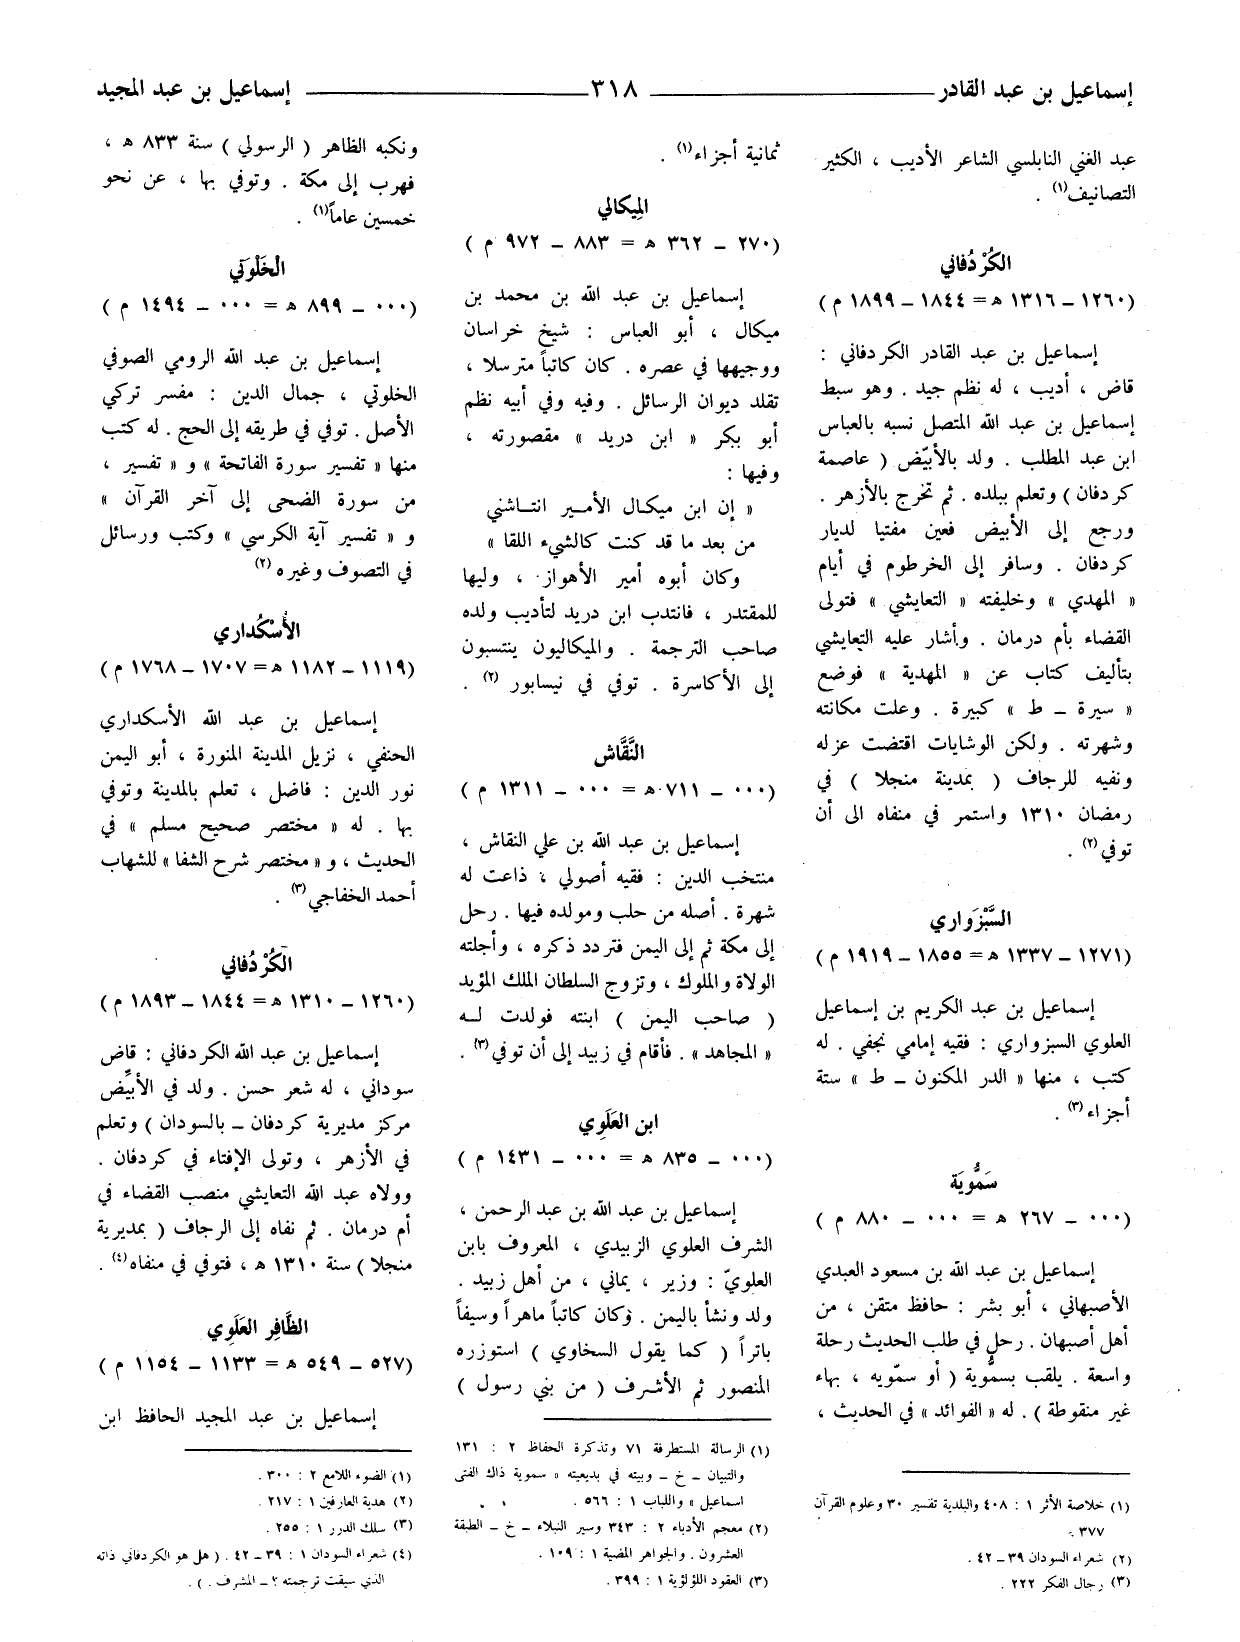 إسماعيل بن عبد القادر ــــــ ٣١٨ ــــــ إسماعيل بن عبد المجيد
عبد الغني النابلسي الشاعر الأديب ، الكثير
التصانيف(١) .
الكُرْدُفاني
(١٢٦٠ ــ ١٣١٦ ه = ١٨٤٤ ــ ١٨٩٩ م )
إسماعيل بن عبد القادر الكردفاني :
قاض ، أديب ، له نظم جيد . وهو سبط
إسماعيل بن عبد الله المتصل نسبه بالعباس
ابن عبد المطلب . ولد بالأبيّض ( عاصمة
كردفان ) وتعلم ببلده . ثم تخرج بالأزهر .
ورجع إلى الأبيض فعين مفتيا لديار
كردفان . وسافر إلى الخرطوم في أيام
« المهدي » وخليفته « التعايشي » فتولى
القضاء بأم درمان . وأشار عليه التعايشي
بتأليف كتاب عن « المهدية » فوضع
« سيرة ــ ط » كبيرة . وعلت مكانته
وشهرته . ولكن الوشايات اقتضت عزله
ونفيه للرجاف ( بمدينة منجلا ) في
رمضان ١٣١٠ واستمر في منفاه الى أن
توفي(٢) .
السَّبْزَواري
(١٢٧١ ــ ١٣٣٧ ه = ١٨٥٥ ــ ١٩١٩ م )
إسماعيل بن عبد الكريم بن إسماعيل
العلوي السبزواري : فقيه إمامي نجفي . له
كتب ، منها « الدر المكنون ــ ط » ستة
أجزاء(٣) .
سَمُّويَة
(٠٠٠ ــ ٢٦٧ ه = ٠٠٠ ــ ٨٨٠ م )
إسماعيل بن عبد الله بن مسعود العبدي
الأصبهاني ، أبو بشر : حافظ متقن ، من
أهل أصبهان . رحل في طلب الحديث رحلة
واسعة . يلقب بسمُّوية ( أو سمّويه ، بهاء
غير منقوطة ) . له « الفوائد » في الحديث ،
(١) خلاصة الأثر ١ : ٤٠٨ والبلدية تفسير ٣٠ وعلوم القرآن
٣٧٧ .
(٢) شعراء السودان ٣٩ ــ ٤٢ .
(٣) رجال الفكر ٢٢٢ .
ثمانية أجزاء(١) .
المِيكالي
(٢٧٠ ــ ٣٦٢ ه = ٨٨٣ ــ ٩٧٢ م )
إسماعيل بن عبد الله بن محمد بن
ميكال ، أبو العباس : شيخ خراسان
ووجيهها في عصره . كان كاتباً مترسلا ،
تقلد ديوان الرسائل . وفيه وفي أبيه نظم
أبو بكر « ابن دريد » مقصورته ،
وفيها :
« إن ابن ميكـال الأمـير انتـاشني
من بعد ما قد كنت كالشيء اللقا »
وكان أبوه أمير الأهواز ، وليها
للمقتدر ، فانتدب ابن دريد لتأديب ولده
صاحب الترجمة . والميكاليون ينتسبون
إلى الأكاسرة . توفي في نيسابور (٢) .
النَّقَّاش
(٠٠٠ ــ ٧١١ ه = ٠٠٠ ــ ١٣١١ م )
إسماعيل بن عبد الله بن علي النقاش ،
منتخب الدين : فقيه أصولي ، ذاعت له
شهرة . أصله من حلب ومولده فيها . رحل
إلى مكة ثم إلى اليمن فتردد ذكره ، وأجلته
الولاة والملوك ، وتزوج السلطان الملك المؤيد
( صاحب اليمن ) ابنته فولدت لـه
« المجاهد » . فأقام في زبيد إلى أن توفي(٣) .
ابن العَلَوِي
(٠٠٠ ــ ٨٣٥ ه = ٠٠٠ ــ ١٤٣١ م )
إسماعيل بن عبد الله بن عبد الرحمن ،
الشرف العلوي الزبيدي ، المعروف بابن
العلويّ : وزير ، يماني ، من أهل زبيد .
ولد ونشأ باليمن . وكان كاتباً ماهراً وسيفاً
باتراً ( كما يقول السخاوي ) استوزره
المنصور ثم الأشرف ( من بني رسول )
(١) الرسالة المستطرفة ٧١ وتذكرة الحفاظ ٢ : ١٣١
والتبيان ــ خ ــ وبيته في بديعيته « سموية ذاك الفتى
اسماعيل » واللباب ١ : ٥٦٦ .
(٢) معجم الأدباء ٢ : ٣٤٣ وسير النبلاء ــ خ ــ الطبقة
العشرون . والجواهر المضية ١ : ١٠٩ .
(٣) العقود اللؤلؤية ١ : ٣٩٩ .
ونكبه الظاهر ( الرسولي ) سنة ٨٣٣ ه ،
فهرب إلى مكة . وتوفي بها ، عن نحو
خمسين عاماً(١) .
الخَلْوَتي
(٠٠٠ ــ ٨٩٩ ه = ٠٠٠ ــ ١٤٩٤ م )
إسماعيل بن عبد الله الرومي الصوفي
الخلوتي ، جمال الدين : مفسر تركي
الأصل . توفي في طريقه إلى الحج . له كتب
منها « تفسير سورة الفاتحة » و « تفسير ،
من سورة الضحى إلى آخر القرآن »
و « تفسير آية الكرسي » وكتب ورسائل
في التصوف وغيره (٢)
الأُسْكُداري
(١١١٩ ــ ١١٨٢ ه = ١٧٠٧ ــ ١٧٦٨ م )
إسماعيل بن عبد الله الأسكداري
الحنفي ، نزيل المدينة المنورة ، أبو اليمن
نور الدين : فاضل ، تعلم بالمدينة وتوفي
بها . له « مختصر صحيح مسلم » في
الحديث ، و « مختصر شرح الشفا » للشهاب
أحمد الخفاجي(٣) .
الكُرْدُفاني
(١٢٦٠ ــ ١٣١٠ ه = ١٨٤٤ ــ ١٨٩٣ م )
إسماعيل بن عبد الله الكردفاني : قاض
سوداني ، له شعر حسن . ولد في الأبيِّض
مركز مديرية كردفان ــ بالسودان ) وتعلم
في الأزهر ، وتولى الإفتاء في كردفان .
وولاه عبد الله التعايشي منصب القضاء في
أم درمان . ثم نفاه إلى الرجاف ( بمديرية
منجلا ) سنة ١٣١٠ ه ، فتوفي في منفاه(٤) .
الظَّافِر العَلَوِي
(٥٢٧ ــ ٥٤٩ ه = ١١٣٣ ــ ١١٥٤ م )
إسماعيل بن عبد المجيد الحافظ ابن
(١) الضوء اللامع ٢ : ٣٠٠ .
(٢) هدية العارفين ١ : ٢١٧ .
(٣) سلك الدرر ١ : ٢٥٥ .
(٤) شعراء السودان ١ : ٣٩ ــ ٤٢ . ( هل هو الكردفاني ذاته
الذي سبقت ترجمته ؟ ــ المشرف . ) .